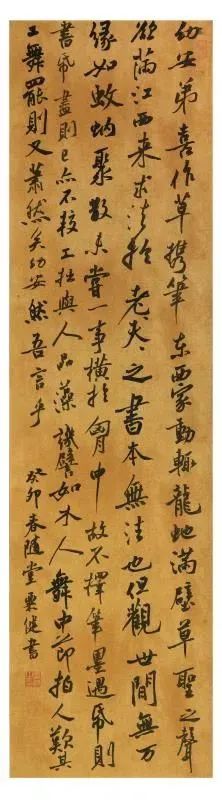 幼安弟喜作草攜筆東西家動輒龍蛇滿壁草聖之聲
欲滿江西来求法於老夫々之書本無法也但觀世間無万
緣如蚊蚋聚散未嘗一事橫於胷中故不擇筆墨遇帋則
書帋盡則已亦不較工拙與人品藻譏譬如木人舞中節拍人歎其
工舞罷則又蕭然矣幼安然吾言乎
癸卯春隨堂健書